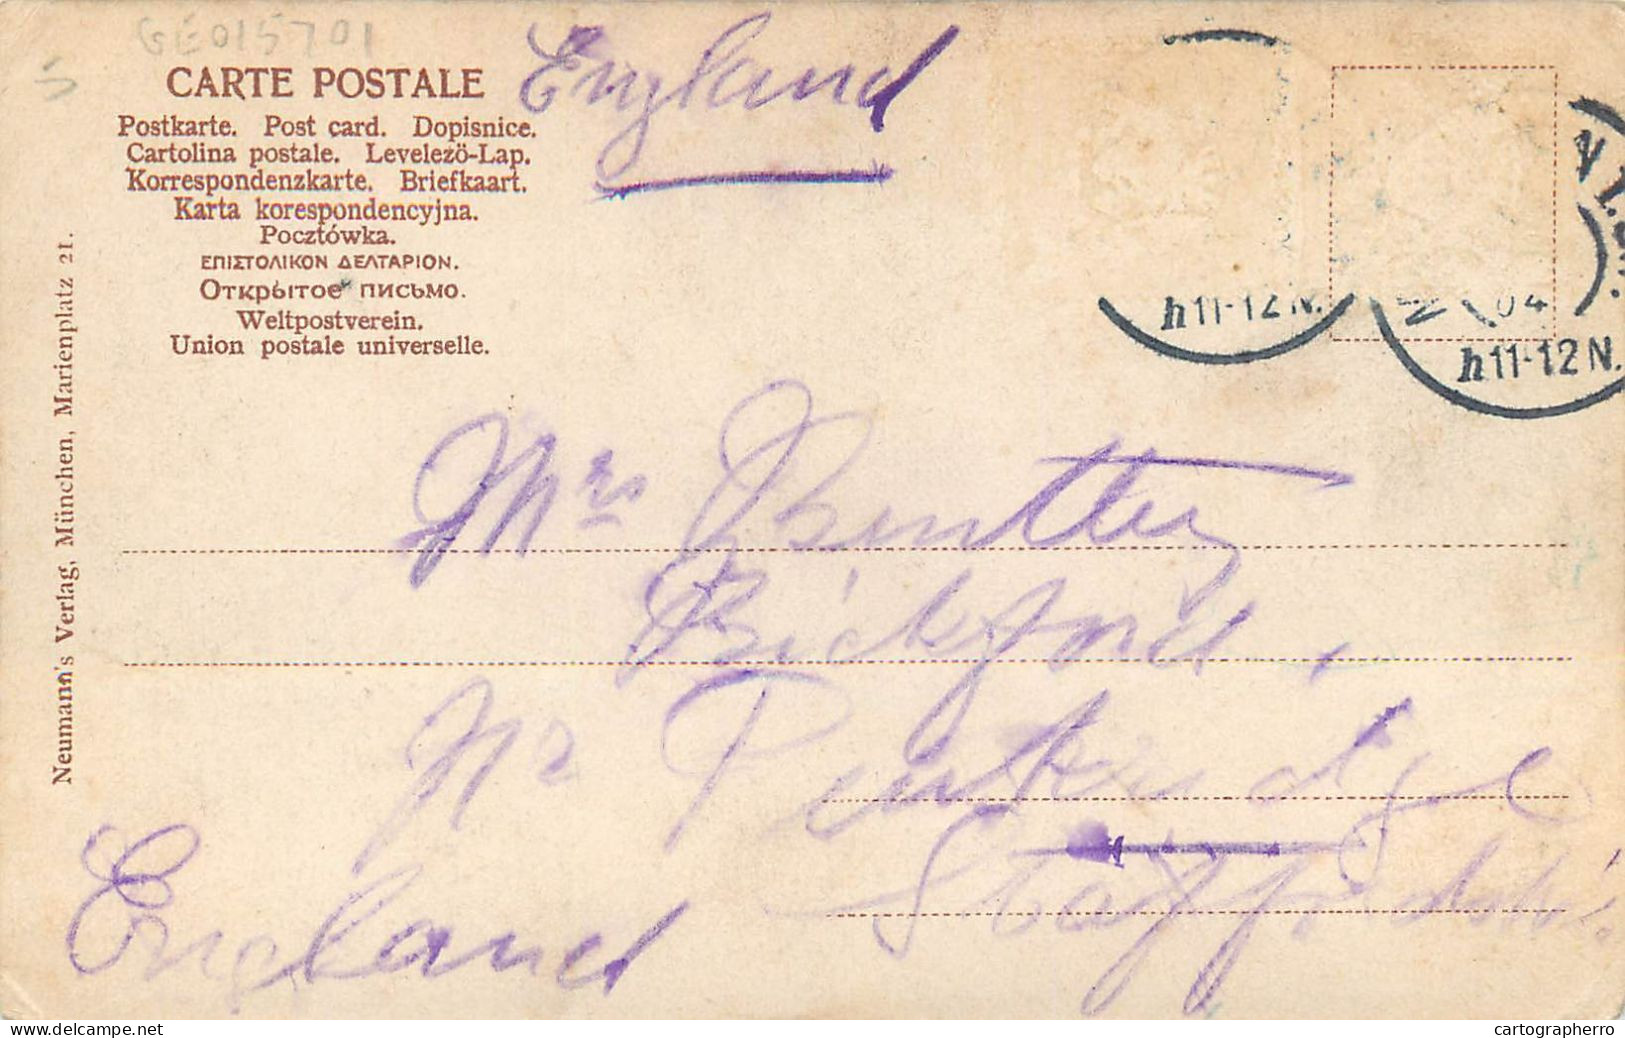 GE015701
5
CARTE POSTALE
England
Postkarte. Post card. Dopisnice.
Cartolina postale. Levelező-Lap.
Korrespondenzkarte. Briefkaart.
Karta korespondencyjna.
Pocztówka.
ΕΠΙΣΤΟΛΙΚΟΝ ΔΕΛΤΑΡΙΟΝ.
Открытое письмо.
Weltpostverein.
Union postale universelle.
Neumann's Verlag, München, Marienplatz 21.
h11-12N.
04
h11-12N.
Mrs Bentley
Bickford,
Nr Penkridge
England
www.delcampe.net
cartographerro